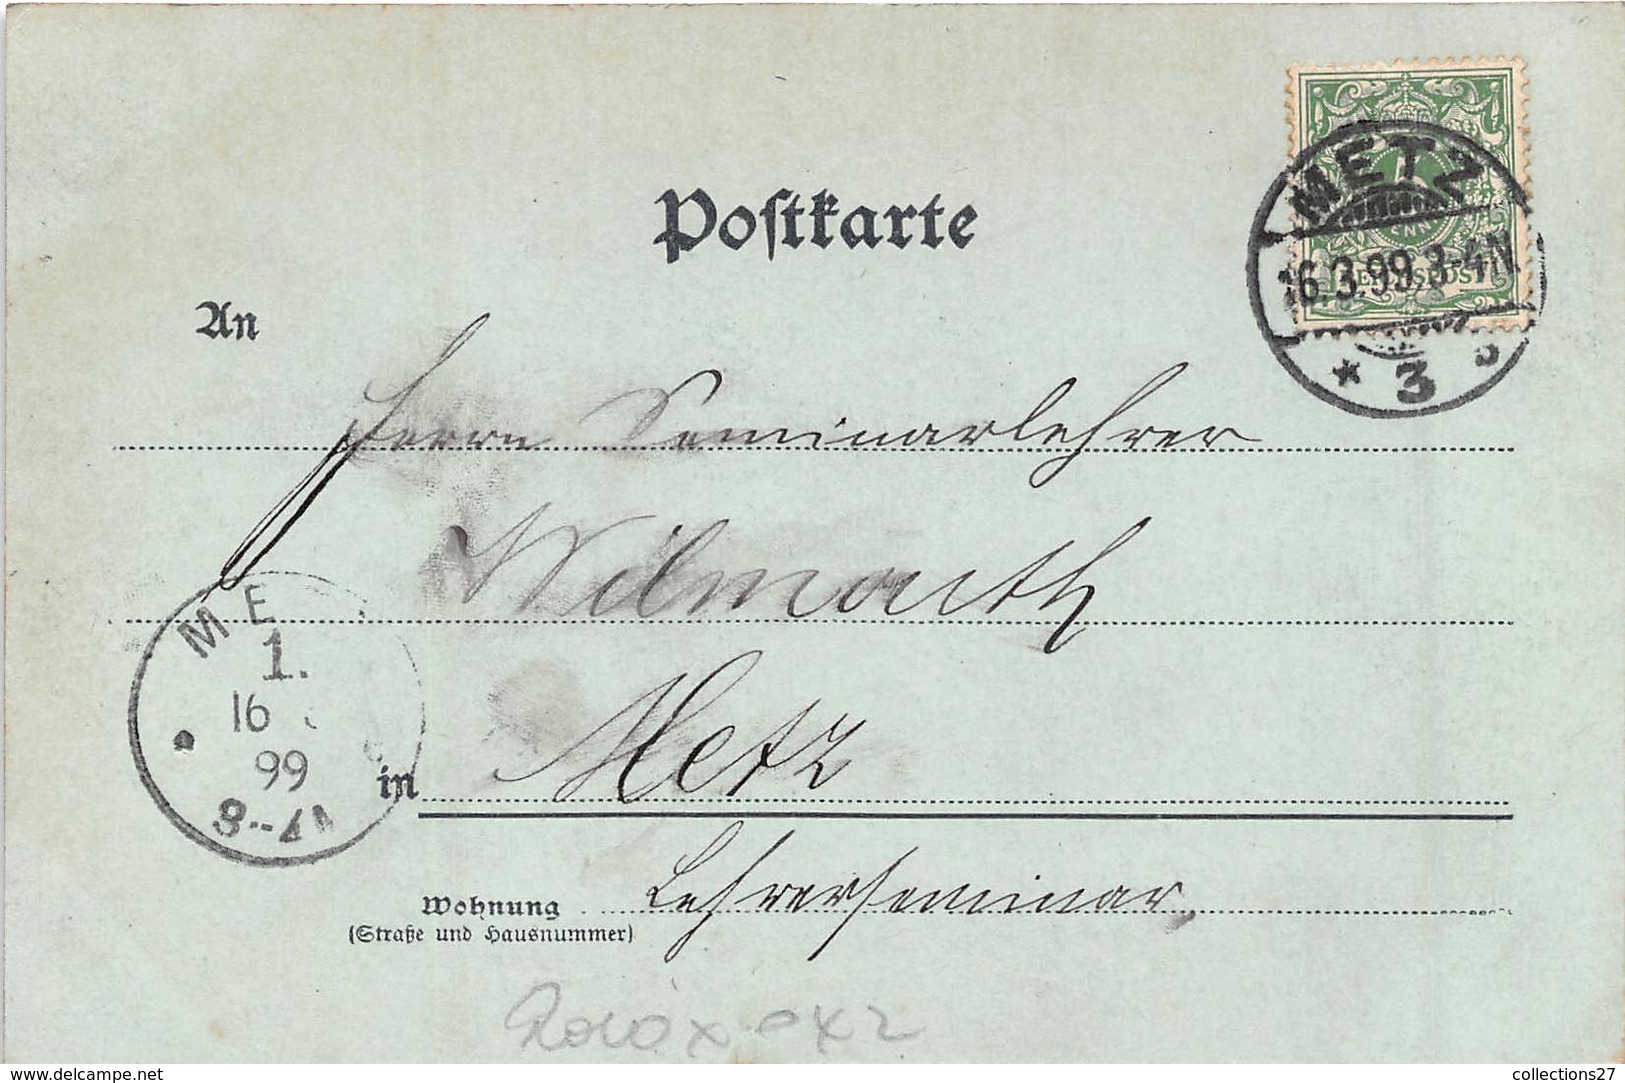 Postkarte
METZ
16.3.99.3-4N
* 3
REICHSPOST
An
Herrn Seminarlehrer
Wilmouth
ME
1.
16
99
3-4N
in Metz
Wohnung Lehrerseminar
(Straße und Hausnummer)
www.delcampe.net
collections27